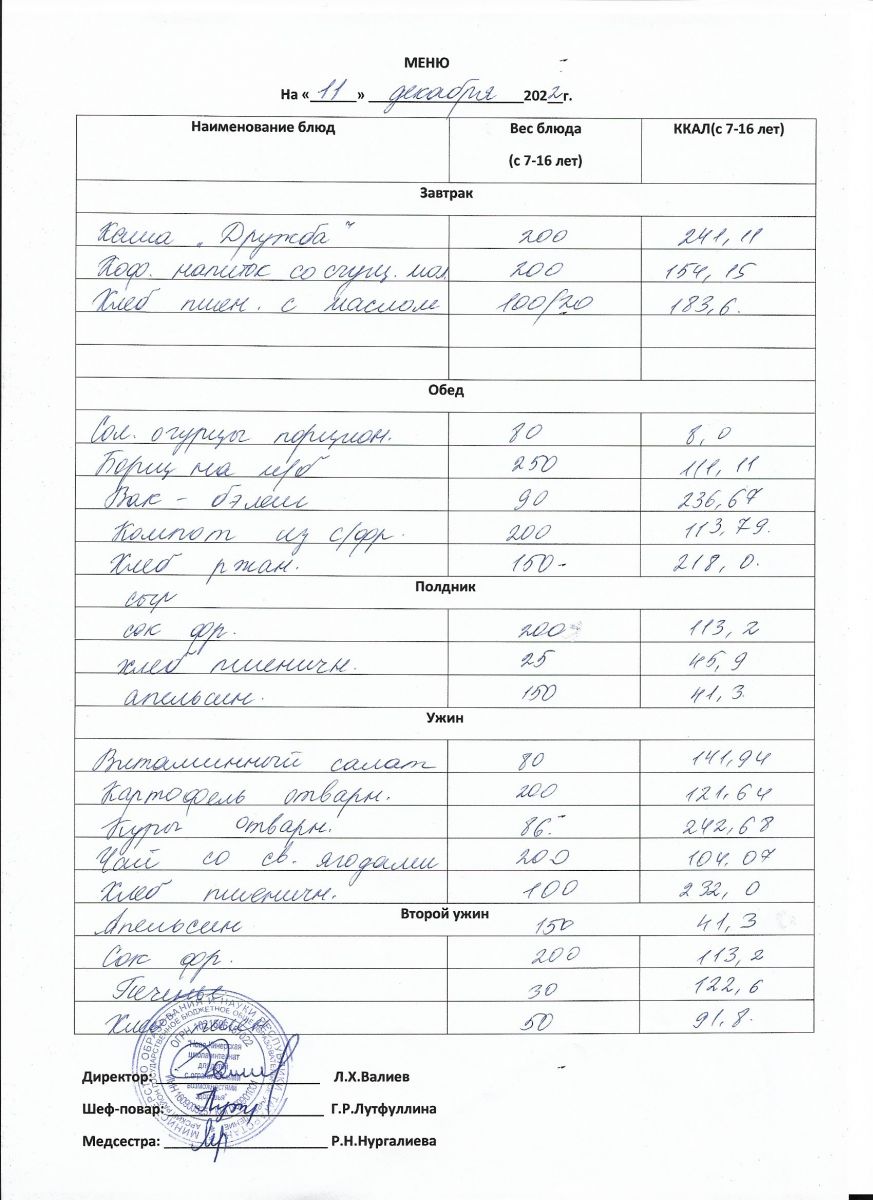 МЕНЮ
На « 11 » декабря 2022 г.
Наименование блюд Вес блюда (с 7-16 лет) ККАЛ(с 7-16 лет)
Завтрак
Каша „Дружба" 200 241,11
Коф. напиток со сгущ. мол 200 154,15
Хлеб пшен. с маслом 100/20 183,6.
Обед
Сол. огурцы порцион. 80 8,0
Борщ на м/б 250 111,11
Вак - бэлеш 90 236,67
Компот из с/фр. 200 113,79.
Хлеб ржан. 150- 218,0.
Полдник
сыр
сок фр. 200 113,2
хлеб пшеничн. 25 45,9
апельсин. 150 41,3.
Ужин
Витаминный салат 80 141,94
Картофель отварн. 200 121,64
Куры отварн. 86.- 242,68
Чай со св. ягодами 200 104.07
Хлеб пшеничн. 100 232,0
Второй ужин
Апельсин 150 41,3
Сок фр. 200 113,2
Печенье 30 122,6
50 91,8.
Директор: Л.Х.Валиев
Шеф-повар: Г.Р.Лутфуллина
Медсестра: Р.Н.Нургалиева